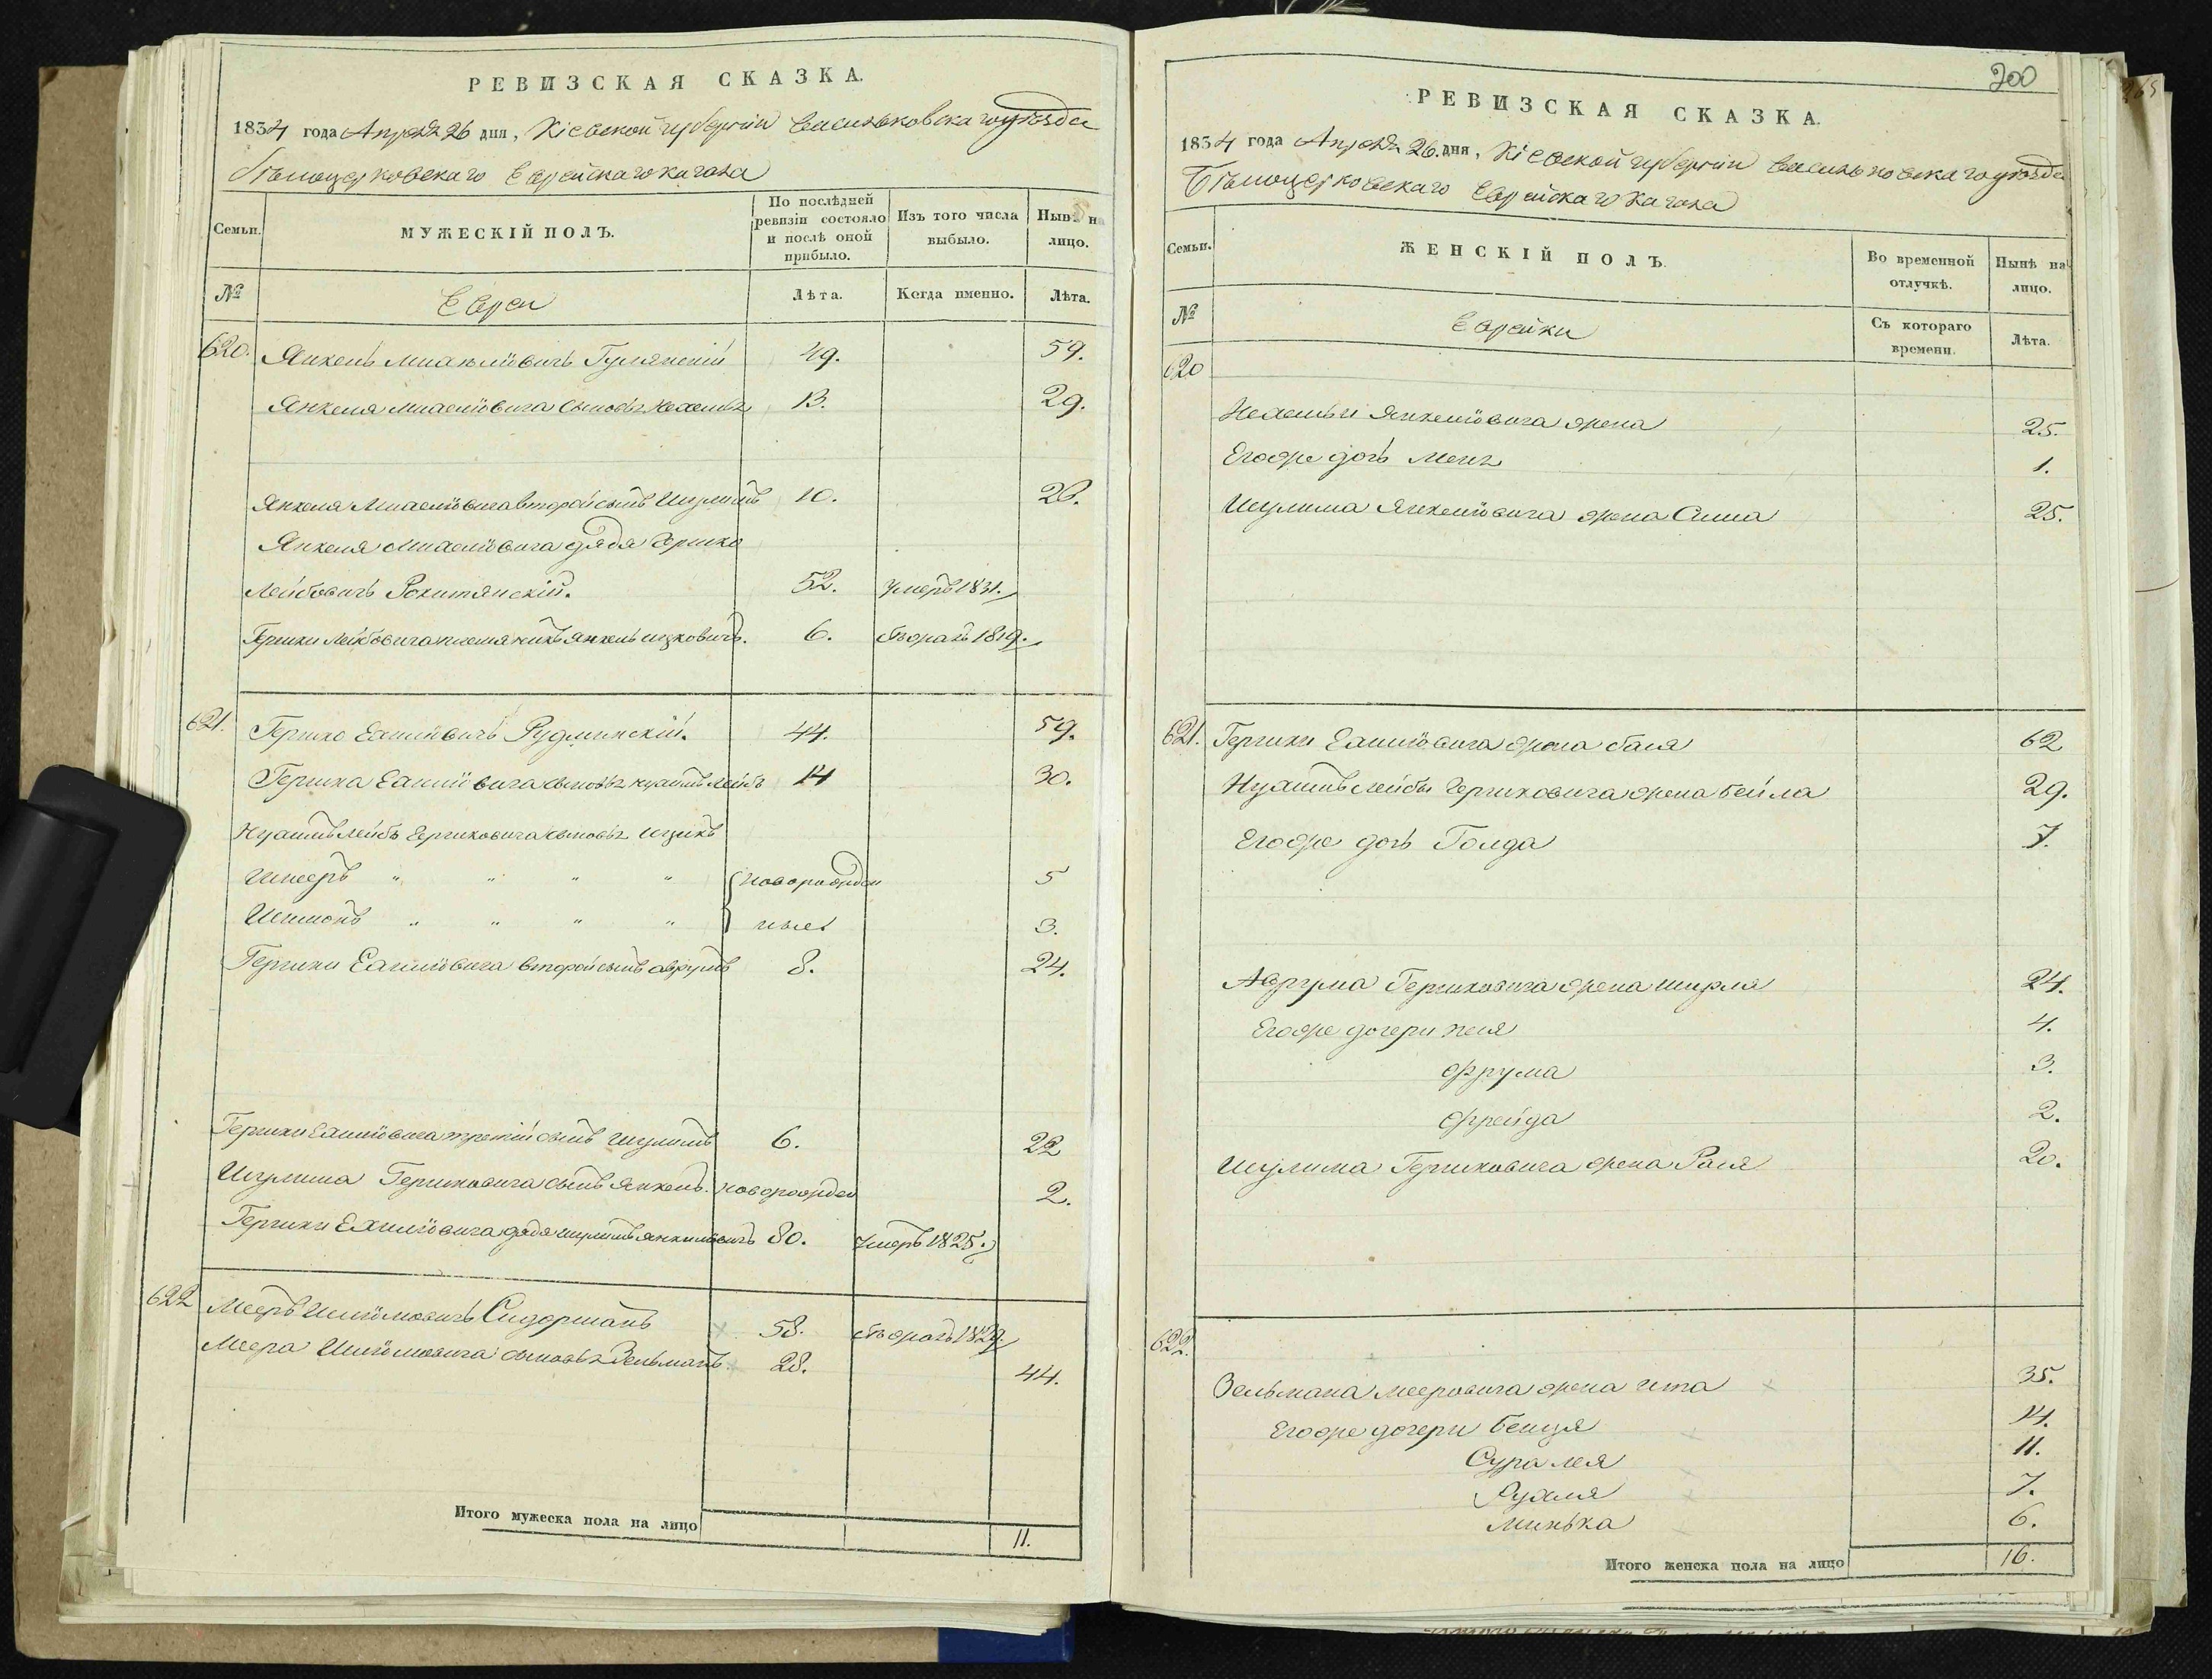 РЕВИЗСКАЯ СКАЗКА.
1834 года Апреля 26 дня, Кіевской губерніи Васильковскаго уѣзда
Бѣлоцерковскаго Еврейскаго кагала
Семьи.
МУЖЕСКІЙ ПОЛЪ.
По послѣдней ревизіи состояло и послѣ оной прибыло.
Изъ того числа выбыло.
Нынѣ на лицо.
№
Евреи
Лѣта.
Когда именно.
Лѣта.
620. Янкель Михелёвичь 49. 59.
Янкеля Михелёвича сыновья 13. 29.
Янкеля Михелёвича второй сынъ Шулимъ 10. 26.
Янкеля Михелёвича дядя Гершко
Лейбовичь Рокитянскій. 52. Умеръ 1831.
Гершки Лейбовича племяникъ Янкель Ицковичь. 6. 1819.
621. Гершко Рудминскій. 44. 59.
Гершка сыновья Лейбъ 14 30.
Лейбъ Гершковича сыновья Ицикъ
Шмееръ " " " " новорожден 5
Шимонъ " " " " ные 3.
Гершки второй сынъ Аврумъ 8. 24.
Гершки третій сынъ Шулимъ 6. 22
Шулима Гершковича сынъ Янкель. новорожден 2.
Гершки дядя Янкилёвичь 80. Умеръ 1825.
622 Мееръ Шлёмовичь 58. 1829.
Меера Шлёмовича сыновья Зельманъ 28. 44.
Итого мужеска пола на лицо 11.
200
РЕВИЗСКАЯ СКАЗКА.
1834 года Апреля 26. дня, Кіевской губерніи Васильковскаго уѣзда
Бѣлоцерковскаго Еврейскаго Кагала
Семьи.
ЖЕНСКІЙ ПОЛЪ.
Во временной отлучкѣ.
Нынѣ на лицо.
№
Еврейки
Съ котораго времени.
Лѣта.
620
Янкелёвича жена 25.
Егоже дочь 1.
Шулима Янкелёвича жена 25.
621. Гершки жена Бася 62
Лейбы Гершковича жена Бейла 29.
Егоже дочь Голда 7.
Аврума Гершковича жена Ширля 24.
Егоже дочери 4.
Фрума 3.
Фрейда 2.
Шулима Гершковича жена Рася 20.
622.
Зельмана Мееровича жена Ита 35.
Егоже дочери Бенця 14.
Сура Лея 11.
Рухля 7.
Минька 6.
Итого женска пола на лицо 16.